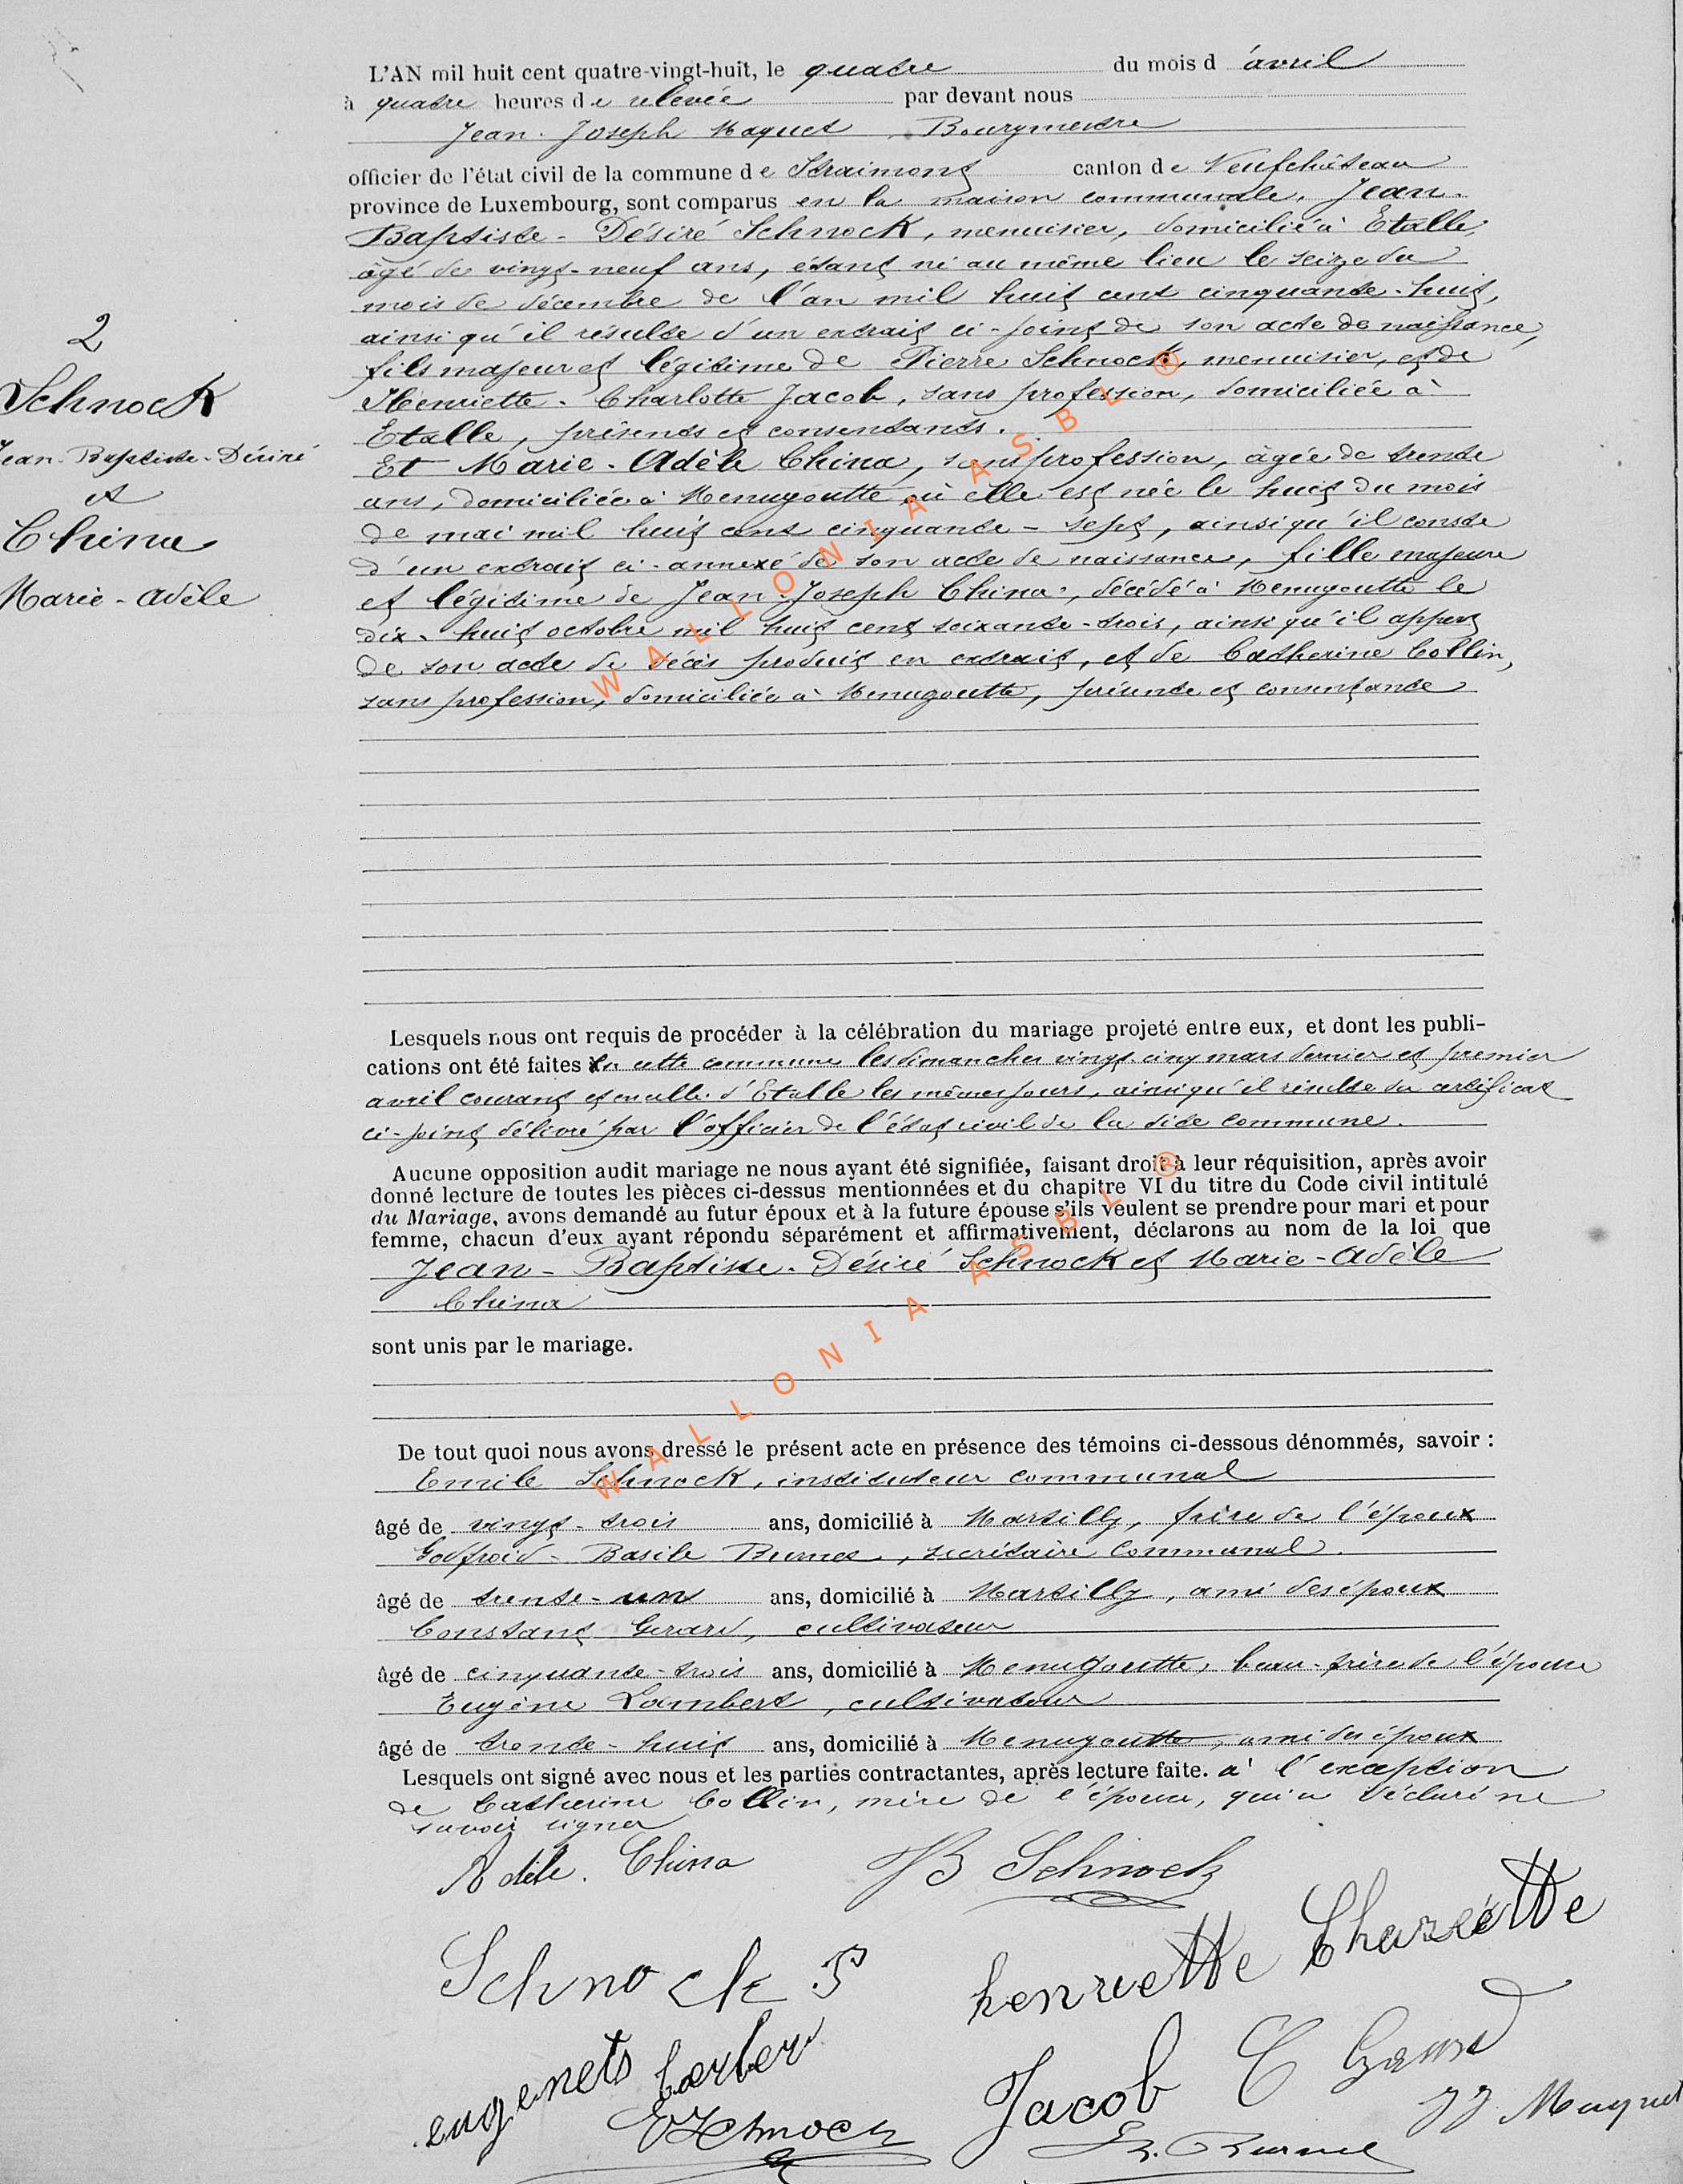 L'AN mil huit cent quatre-vingt-huit, le quatre du mois d'avril
à quatre heures de relevée par devant nous
Jean-Joseph Maquet, Bourgmestre
officier de l'état civil de la commune de Straimont canton de Neufchâteau
province de Luxembourg, sont comparus en la maison communale, Jean-
Baptiste-Désiré Schnock, menuisier, domicilié à Etalle,
âgé de vingt-neuf ans, étant né au même lieu le seize du
mois de décembre de l'an mil huit cent cinquante-huit,
ainsi qu'il résulte d'un extrait ci-joint de son acte de naissance,
fils majeur et légitime de Pierre Schnock, menuisier, et de
Henriette-Charlotte Jacob, sans profession, domiciliée à
Etalle, présents et consentants.
Et Marie-Adèle China, sans profession, âgée de trente
ans, domiciliée à Menugoutte où elle est née le huit du mois
de mai mil huit cent cinquante-sept, ainsi qu'il conste
d'un extrait ci-annexé de son acte de naissance, fille majeure
et légitime de Jean-Joseph China, décédé à Menugoutte le
dix-huit octobre mil huit cent soixante-trois, ainsi qu'il appert
de son acte de décès produit en extrait, et de Catherine Collin,
sans profession, domiciliée à Menugoutte, présente et consentante
2
Schnock
Jean-Baptiste-Désiré
et
China
Marie-Adèle
Lesquels nous ont requis de procéder à la célébration du mariage projeté entre eux, et dont les publi-
cations ont été faites en cette commune les dimanches vingt-cinq mars dernier et premier
avril courant et en celle d'Etalle les mêmes jours, ainsi qu'il résulte du certificat
ci-joint délivré par l'officier de l'état civil de la dite commune.
Aucune opposition audit mariage ne nous ayant été signifiée, faisant droit à leur réquisition, après avoir
donné lecture de toutes les pièces ci-dessus mentionnées et du chapitre VI du titre du Code civil intitulé
du Mariage, avons demandé au futur époux et à la future épouse s'ils veulent se prendre pour mari et pour
femme, chacun d'eux ayant répondu séparément et affirmativement, déclarons au nom de la loi que
Jean-Baptiste-Désiré Schnock et Marie-Adèle
China
sont unis par le mariage.
De tout quoi nous avons dressé le présent acte en présence des témoins ci-dessous dénommés, savoir :
Emile Schnock, instituteur communal
âgé de vingt-trois ans, domicilié à Martilly, frère de l'époux
Godfroid-Basile Burnet, secrétaire communal.
âgé de trente-un ans, domicilié à Martilly, ami des époux
Constant Gerard, cultivateur
âgé de cinquante-trois ans, domicilié à Menugoutte, beau-frère de l'épouse
Eugène Lambert, cultivateur
âgé de trente-huit ans, domicilié à Menugoutte, ami des époux
Lesquels ont signé avec nous et les parties contractantes, après lecture faite. à l'exception
de Catherine Collin, mère de l'épouse, qui a déclaré ne
savoir signer
Adèle. China JB Schnock
Schnock P henriette Charlotte
Jacob C Gerard
JJ Maquet
E Schnock
WALLONIA ASBL ®
WALLONIA ASBL ®